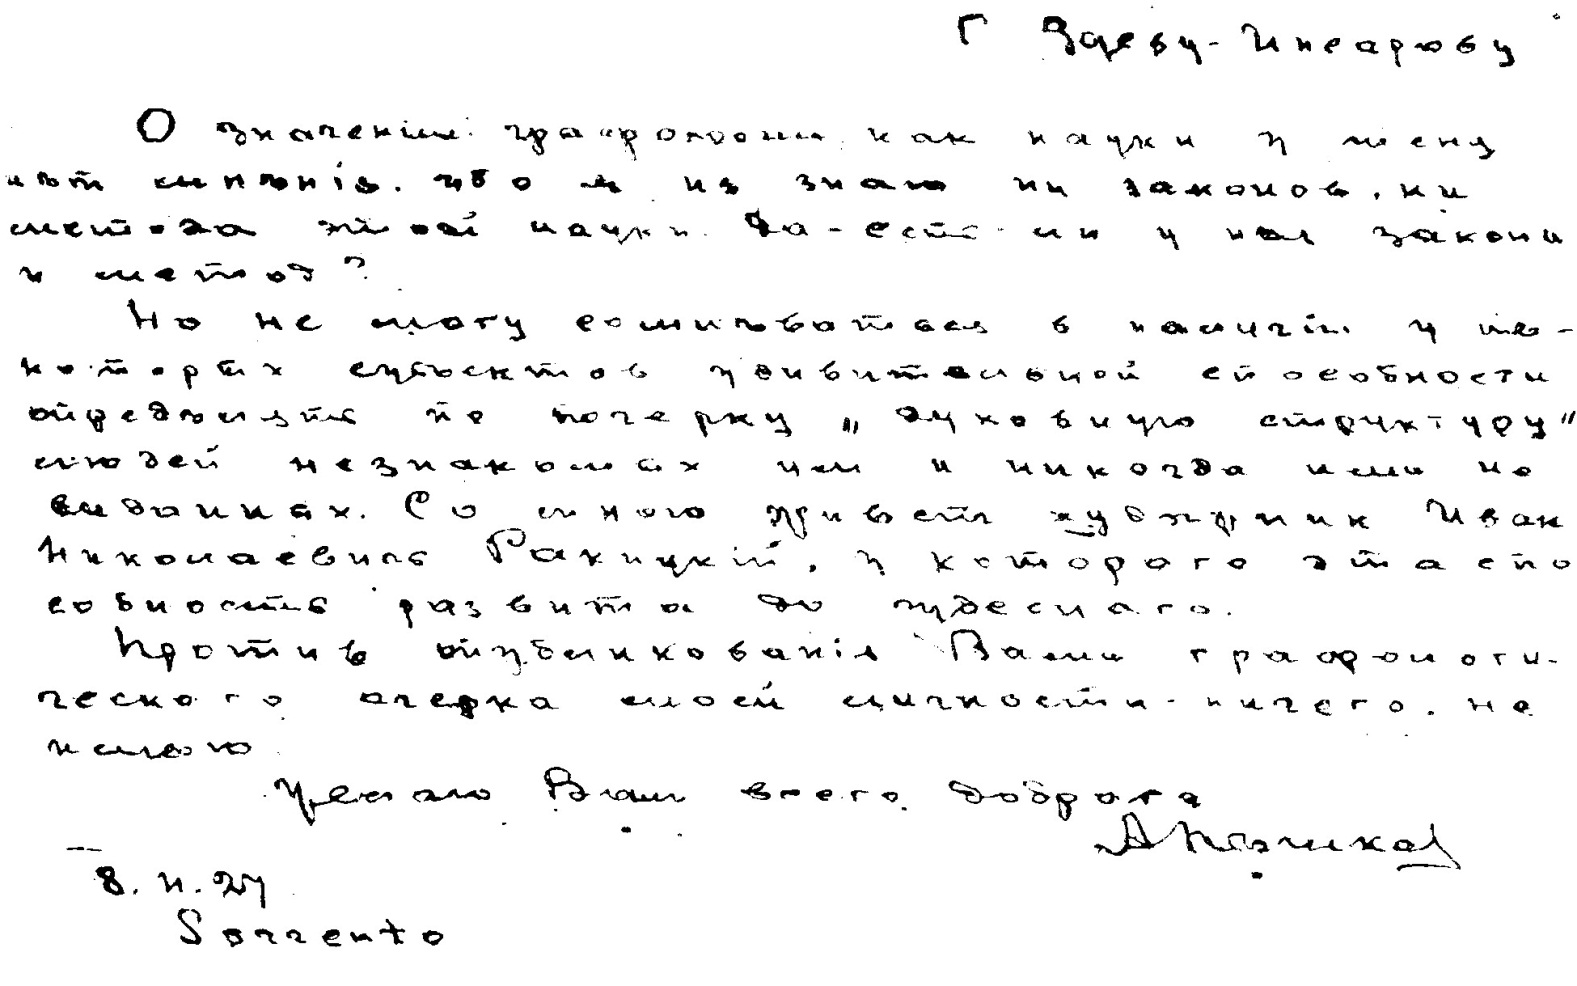 Г Зуеву-Инсарову
О значеніи графологии как науки у меня
нѣт мнѣнія, ибо я не знаю ни законов, ни
метода этой науки. Да - есть ли у нея законы
и метод?
Но не могу сомнѣваться в наличіи у не-
которых субъектов удивительной способности
опредѣлять по почерку „духовную структуру“
людей незнакомых им и никогда ими не
виданных. Со мною живет художник Иван
Николаевич Ракицкій, у которого эта спо
собность развита до чудеснаго.
Против опубликованія Вами графологи-
ческого очерка моей личности - ничего не
имею
Желаю Вам всего доброго
А Пешков
8. 27
Sorrento